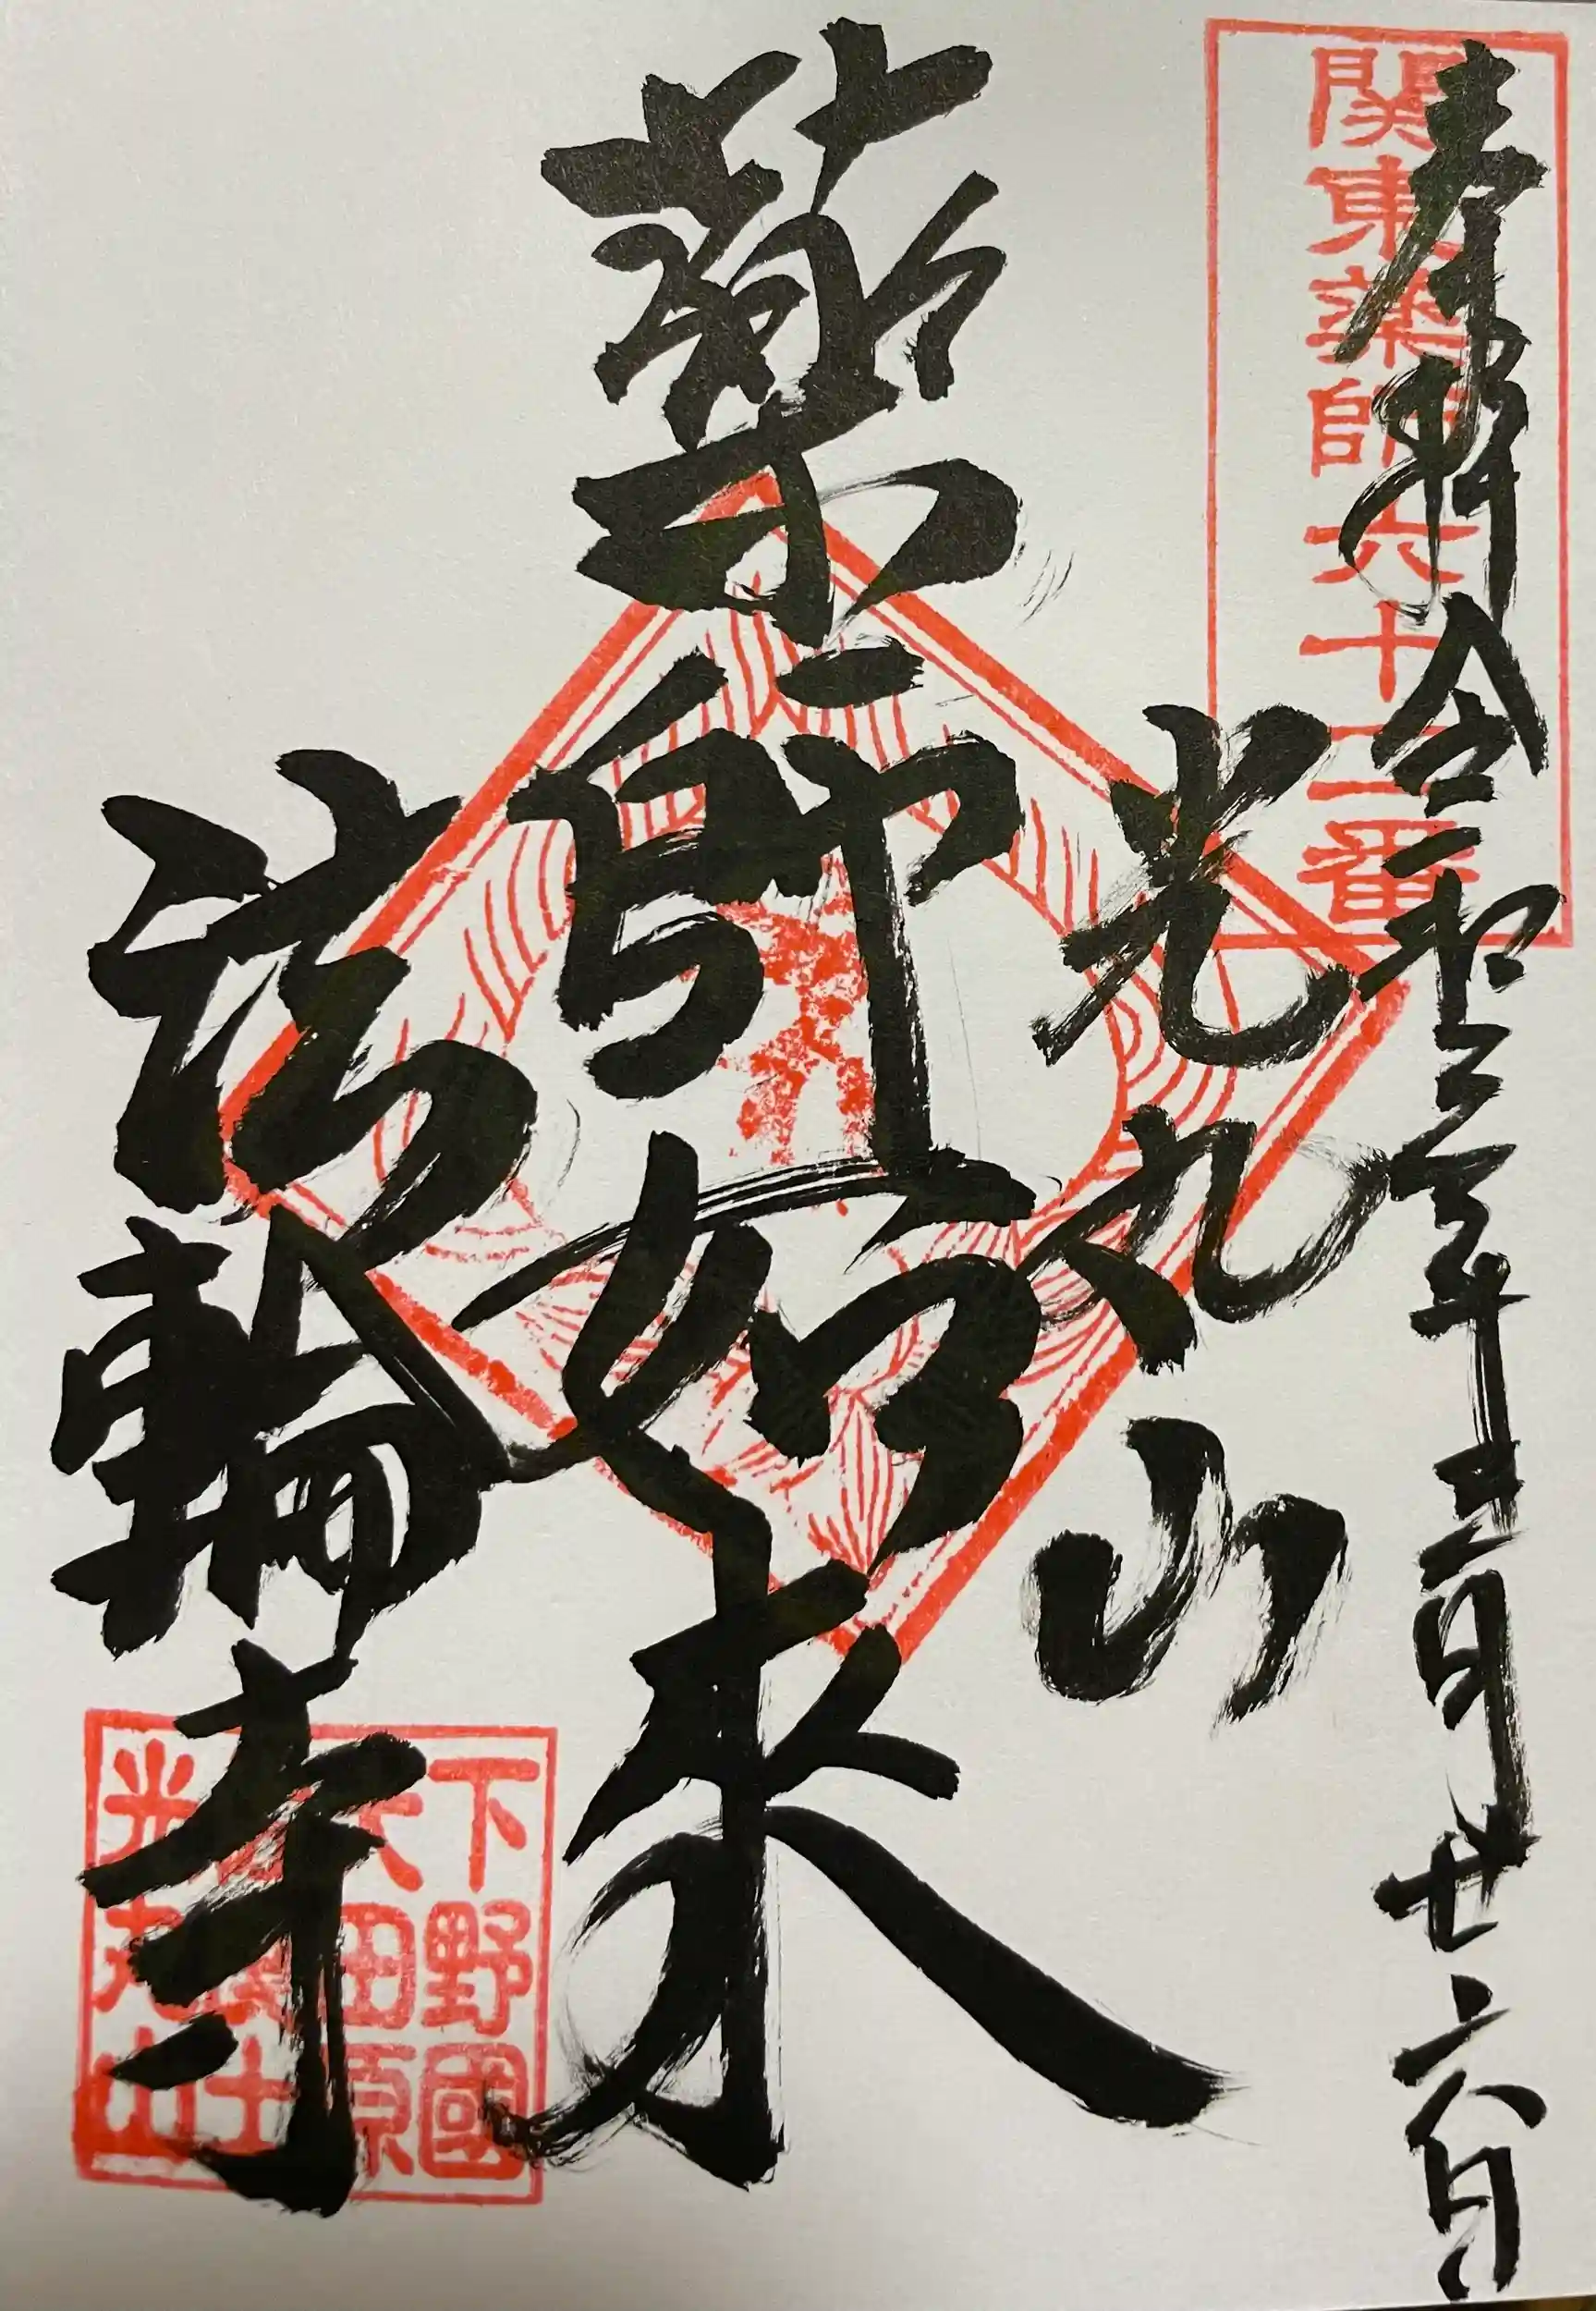 関東薬師六十二番
奉拝 令和 年 月廿六日
光丸山
薬師如来
法輪寺
下野國
大田原
佐良土
光丸山